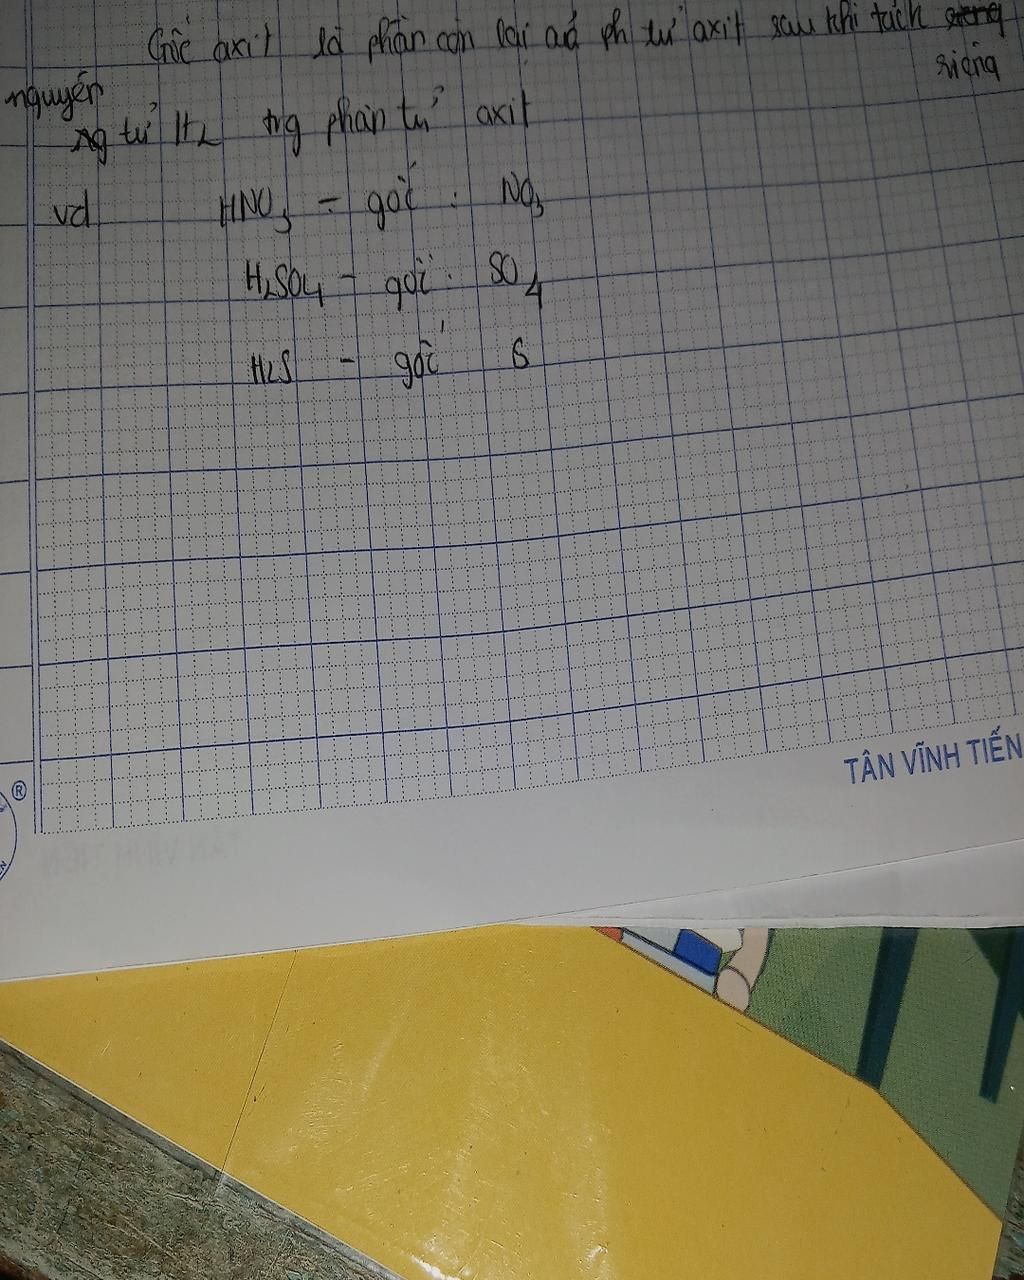 Gốc axit là phần còn lại củả ph tử axit sau khi tách
riêng
nguyên
tử H2 trg phân tử axit
vd HNO3 - gốc : NO3
H2SO4 - gốc : SO4
H2S - gốc S
®
TÂN VĨNH TIẾN